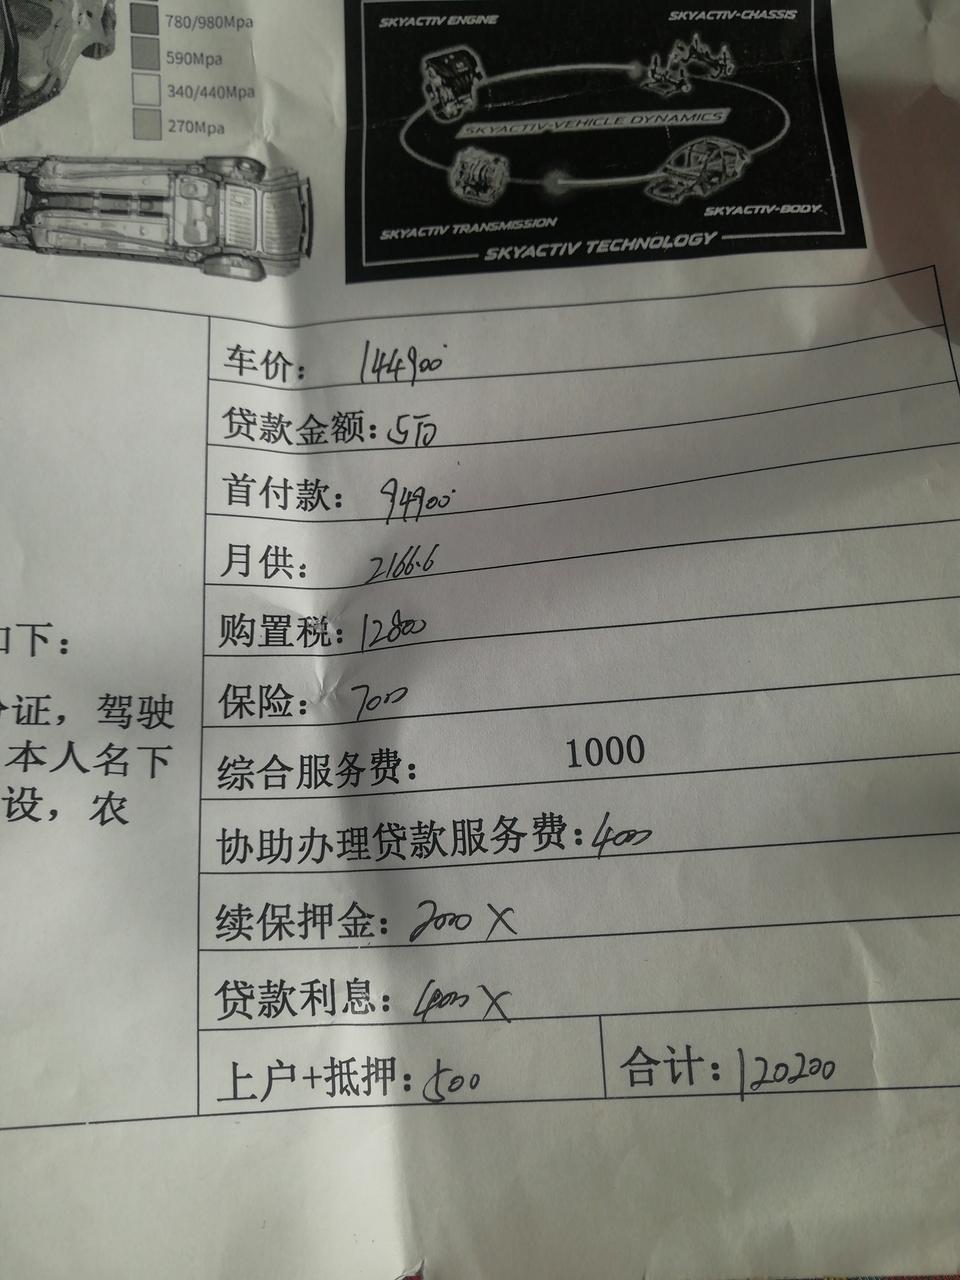 780/980Mpa
590Mpa
340/440Mpa
270Mpa
SKYACTIV ENGINE
SKYACTIV-CHASSIS
SKYACTIV-VEHICLE DYNAMICS
SKYACTIV TRANSMISSION
SKYACTIV-BODY
SKYACTIV TECHNOLOGY
车价： 144900
贷款金额：5万
首付款： 94900
月供： 2166.6
购置税：12800
保险： 7000
综合服务费： 1000
协助办理贷款服务费：4000
续保押金：2000 X
贷款利息：4000 X
上户+抵押：500
合计：120200
下：
证，驾驶
本人名下
设，农